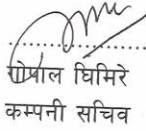 गोपाल घिमिरे
कम्पनी सचिव